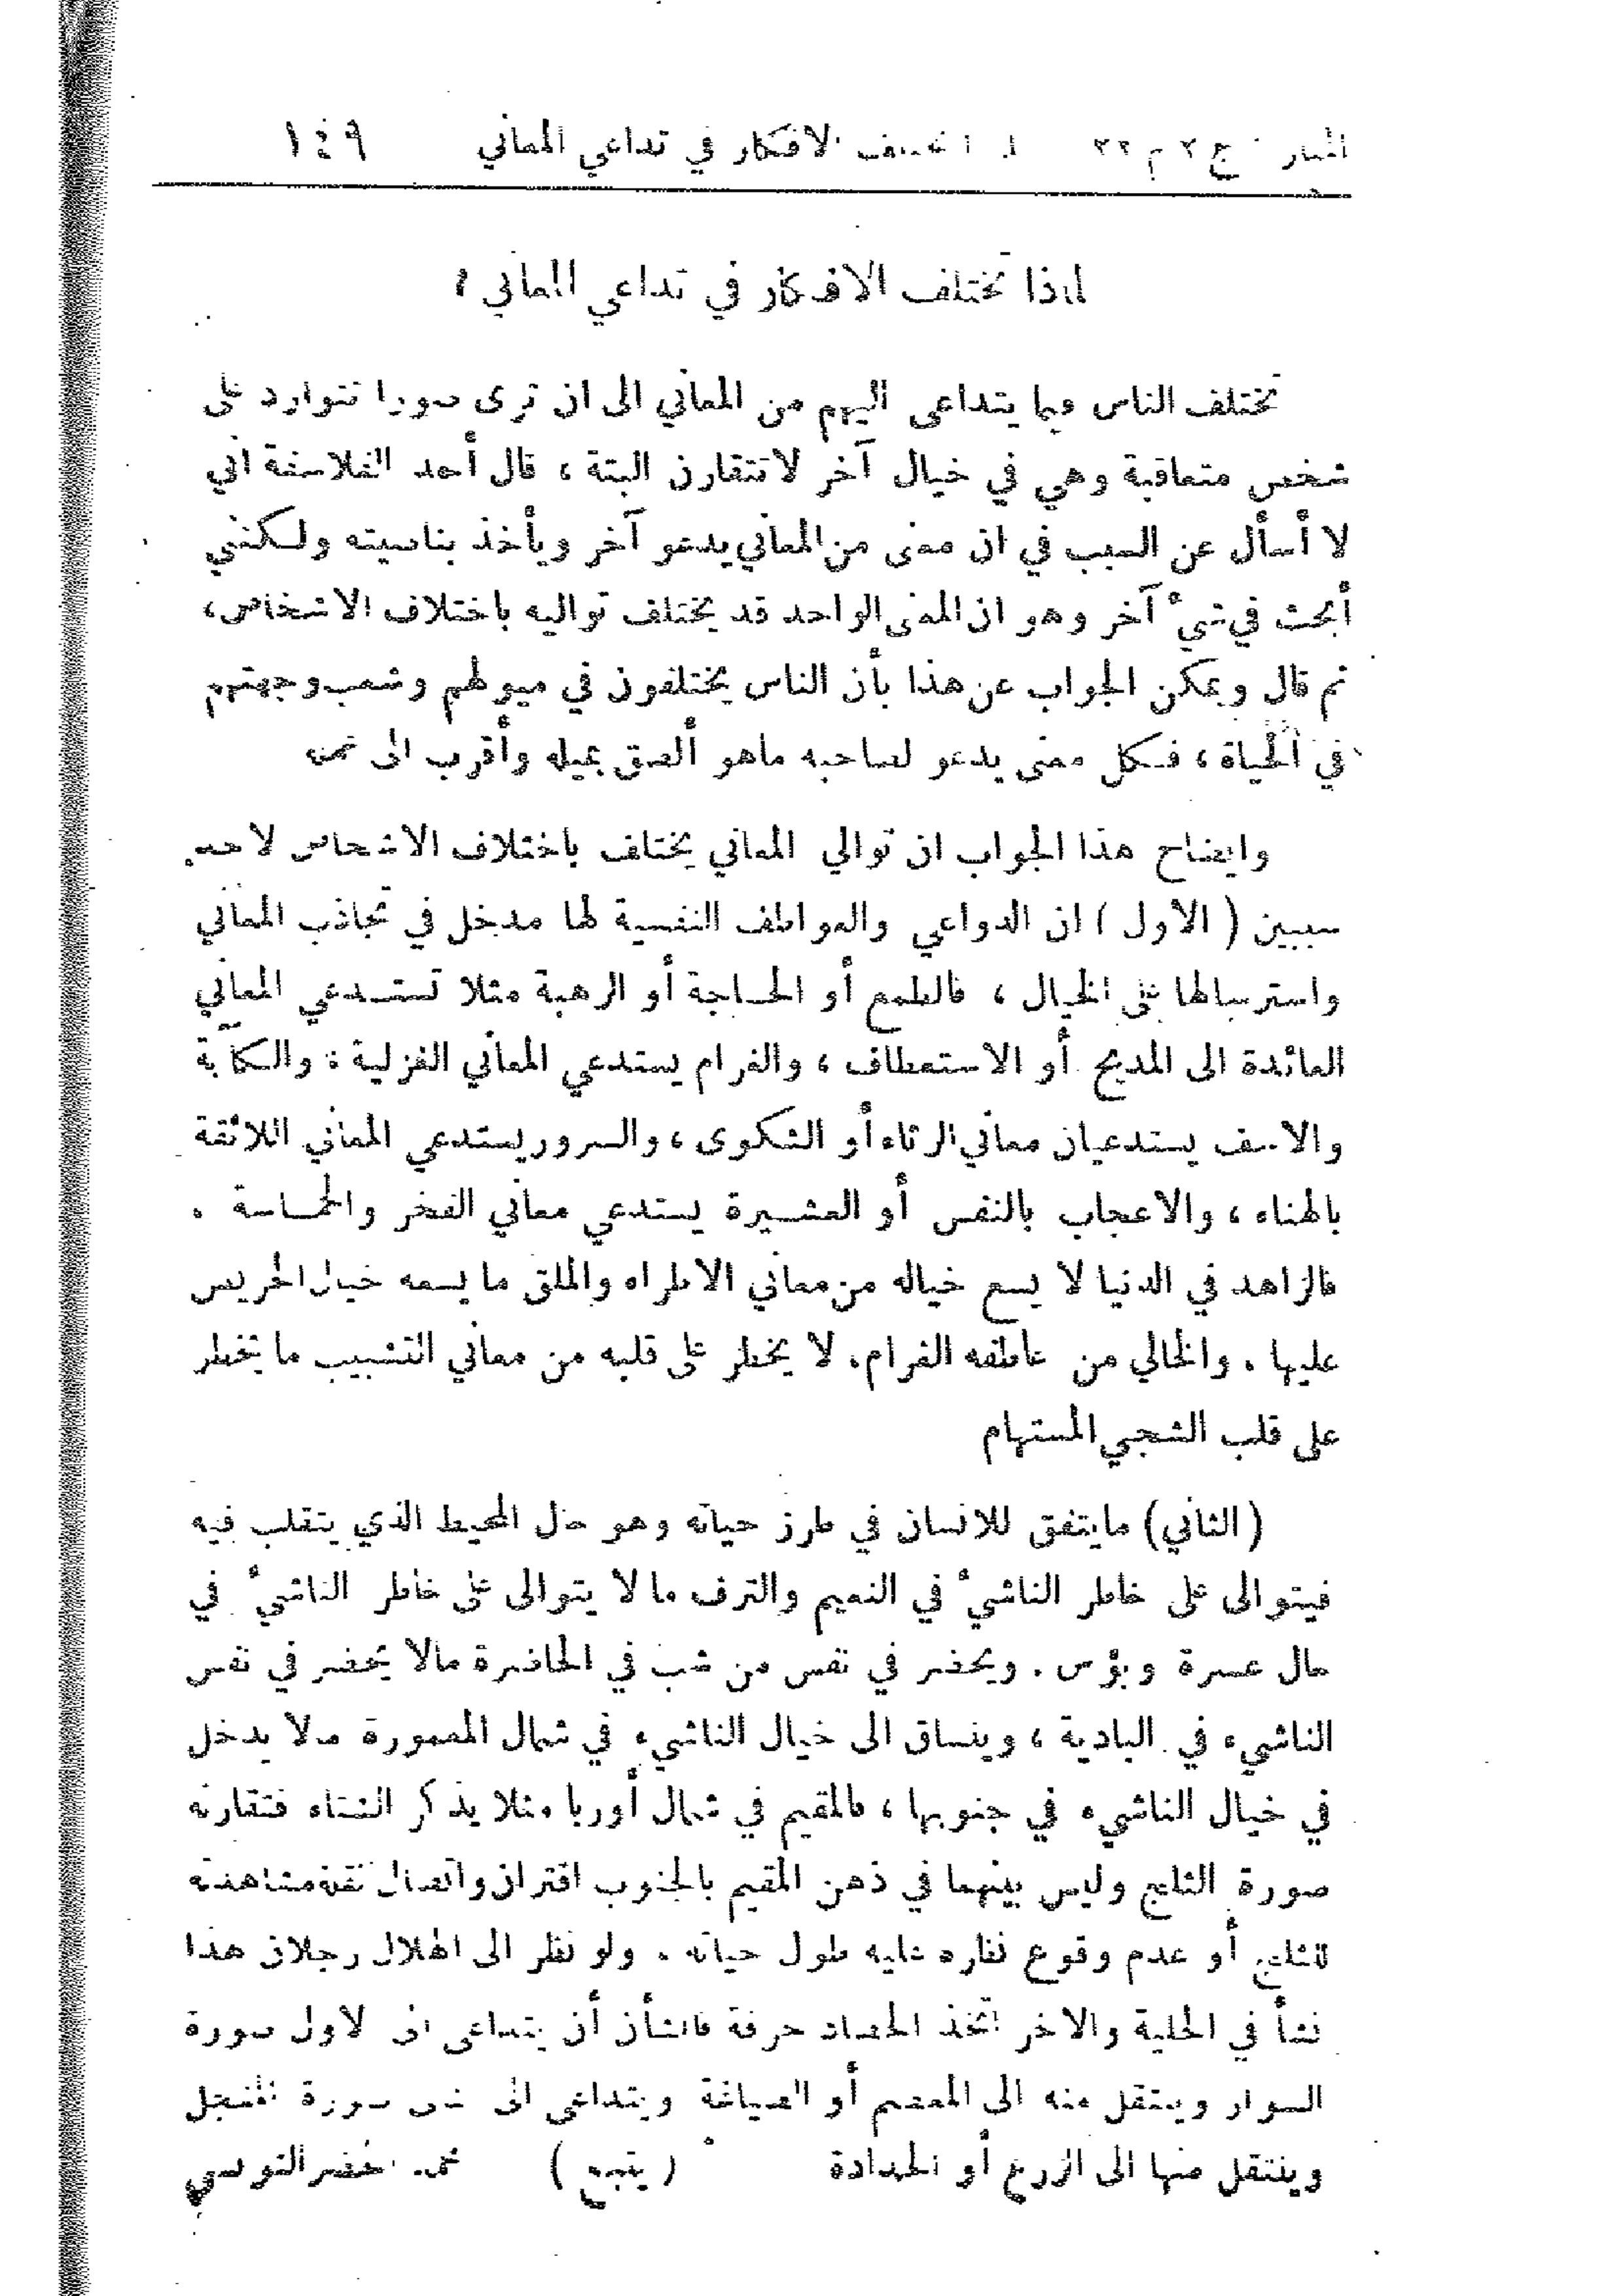 المنار : ج ٣ م ٢٢ تختلف الافكار في تداعي المعاني ١٤٩
لماذا تختلف الافكار في تداعي المعاني ؟
تختلف الناس فيما يتداعى اليهم من المعاني الى ان ترى صورا تتوارد على
شخص متعاقبة وهي في خيال آخر لا تتقارن البتة ، قال أحد الفلاسفة اني
لا أسأل عن السبب في ان معنى من المعاني يدعو آخر ويأخذ بناصيته ولكنني
أبحث في شيء آخر وهو ان المعنى الواحد قد يختلف تواليه باختلاف الاشخاص ،
ثم قال ويمكن الجواب عن هذا بأن الناس يختلفون في ميولهم وشعب وجهتهم
في الحياة ، فكل معنى يدعو لصاحبه ماهو ألصق بميله وأقرب الى
وايضاح هذا الجواب ان توالي المعاني يختلف باختلاف الاشخاص لاحد
سببين ( الاول ) ان الدواعي والعواطف النفسية لها مدخل في تجاذب المعاني
واسترسالها على الخيال ، فالطمع أو الحاجة أو الرهبة مثلا تستدعي المعاني
العائدة الى المديح أو الاستعطاف ، والغرام يستدعي المعاني الغزلية ، والكآبة
والاسف يستدعيان معاني الرثاء أو الشكوى ، والسرور يستدعي المعاني اللائقة
بالهناء ، والاعجاب بالنفس أو العشيرة يستدعي معاني الفخر والحماسة .
فالزاهد في الدنيا لا يسع خياله من معاني الاطراء والملق ما يسعه خيال الحريص
عليها . والخالي من عاطفة الغرام، لا يخطر على قلبه من معاني التشبيب ما يخطر
على قلب الشجي المستهام
( الثاني ) مايتفق للانسان في طرز حياته وهو حال المحيط الذي يتقلب فيه
فيتوالى على خاطر الناشيء في النعيم والترف ما لا يتوالى على خاطر الناشيء في
حال عسرة وبؤس . ويحضر في نفس من شب في الحاضرة مالا يحضر في نفس
الناشيء في البادية ، وينساق الى خيال الناشيء في شمال المعمورة مالا يدخل
في خيال الناشيء في جنوبها ، فالمقيم في شمال أوربا مثلا يذكر الشتاء فتقارنه
صورة الثلج وليس بينهما في ذهن المقيم بالجنوب اقتران واتصال لقلة مشاهدته
للثلج أو عدم وقوع نظره عليه طول حياته . ولو نظر الى الهلال رجلان هذا
نشأ في الحلية والاخر اتخذ الحصاد حرفة فالشأن أن يتداعى الى الاول صورة
السوار وينتقل منه الى المعصم أو الصياغة ويتداعى الى صورة المنجل
وينتقل منها الى الزرع أو الحدادة ( يتبع ) محمد الخضر التونسي